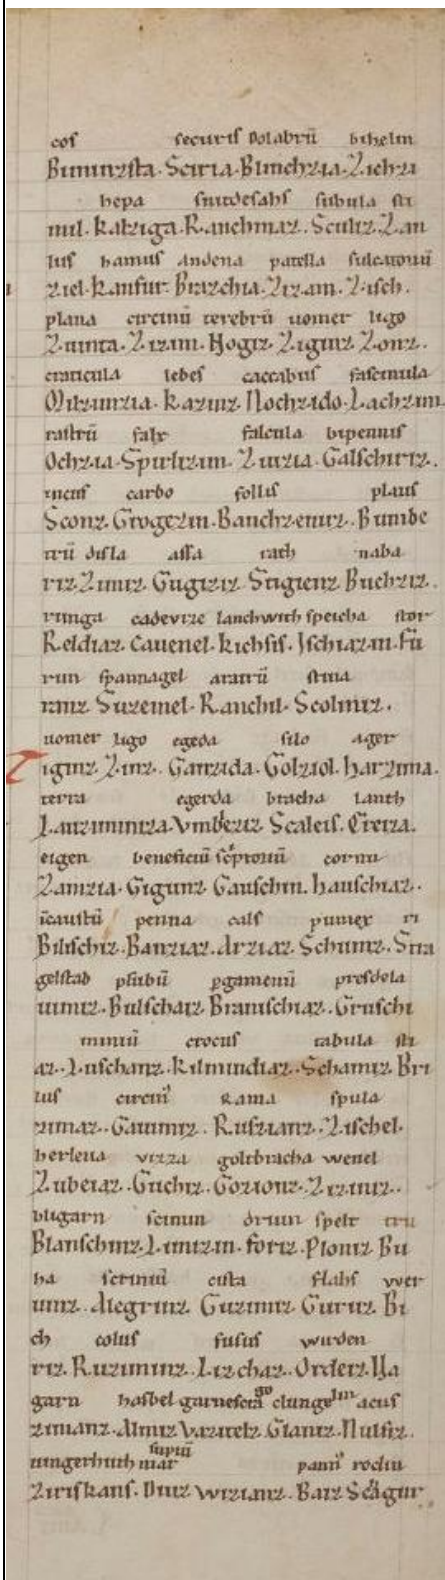 cos securis dolabrū bihelin
Biminzsta. Sciria. Blinchzia. Zichzi
hepa snitdesahs subula sti
nul. Kalziga. Ranchmaz. Sculiz. Zan
lus hamus andena patella sulcatoriū
ziel. Kanfur. Brazchia. Zizam. Zisch.
plana circinū terebrū uomer ligo
Zuinta. Zizam. Hogiz. Ziginz. Zonz.
craticula lebes caccabus fascinula
Milzimzia. Kazinz. Nochzido. Lachzim
rastrū falx falcula bipennis
Ochzia. Spirlizim. Zuizia. Galschiriz.
incus carbo follis plaus
Sconz. Grogezin. Banchzeniz. Bumbe
trū disla assa rath naba
riz. Zimiz. Gugiziz. Stigienz. Buchziz.
runga cadevize lanchwith speicha stor
Reldiaz. Cauenel. Kichsis. Ischiazin. Fu
run spannagel aratrū stiua
ranz. Suzeinel. Ranchil. Scolmiz.
uomer ligo egeda silo ager
Ziginz. Zinz. Ganzida. Golziol. harzima.
terra egerda bracha lanth
Lauziminiza. Vmbeziz. Scaleis. Creiza.
eigen beneficiū scēptoriū cornu
Zamzia. Gigunz. Gauschin. hauschiaz.
īcaustū penna cals pumex ri
Bilischiz. Banziaz. Arziaz. Schumz. Stra
gelstab plūbū pgamenū presdela
uimiz. Bulschaiz. Branischiaz. Gruschi
miniū crocus tabula sti
az. Luschanz. Kilmindiaz. Schamiz. Bri
lus circin' rama spula
zimaz. Gauimiz. Ruszianz. Zischel.
herleua vizza goltbracha wenel
Zubeiaz. Guchiz. Gozionz. Zizimiz.
bligarn scinun driun spelt tru
Blanschinz. Limizin. foriz. Ploniz. Bu
ha scriniū cista flahs wer
uinz. Alegrinz. Guzimiz. Guruz. Bi
ch colus fusus wirden
riz. Ruziminz. Lizchaz. Ordeiz. Na
garn hasbel garnescia go clungelin acus
zimanz. Alniz. Vazizelz. Glaniz. Nulsiz.
uingerhuth supiū mar pann' rochu
Ziriskans. Diuz. wizianz. Baiz. Scagiir